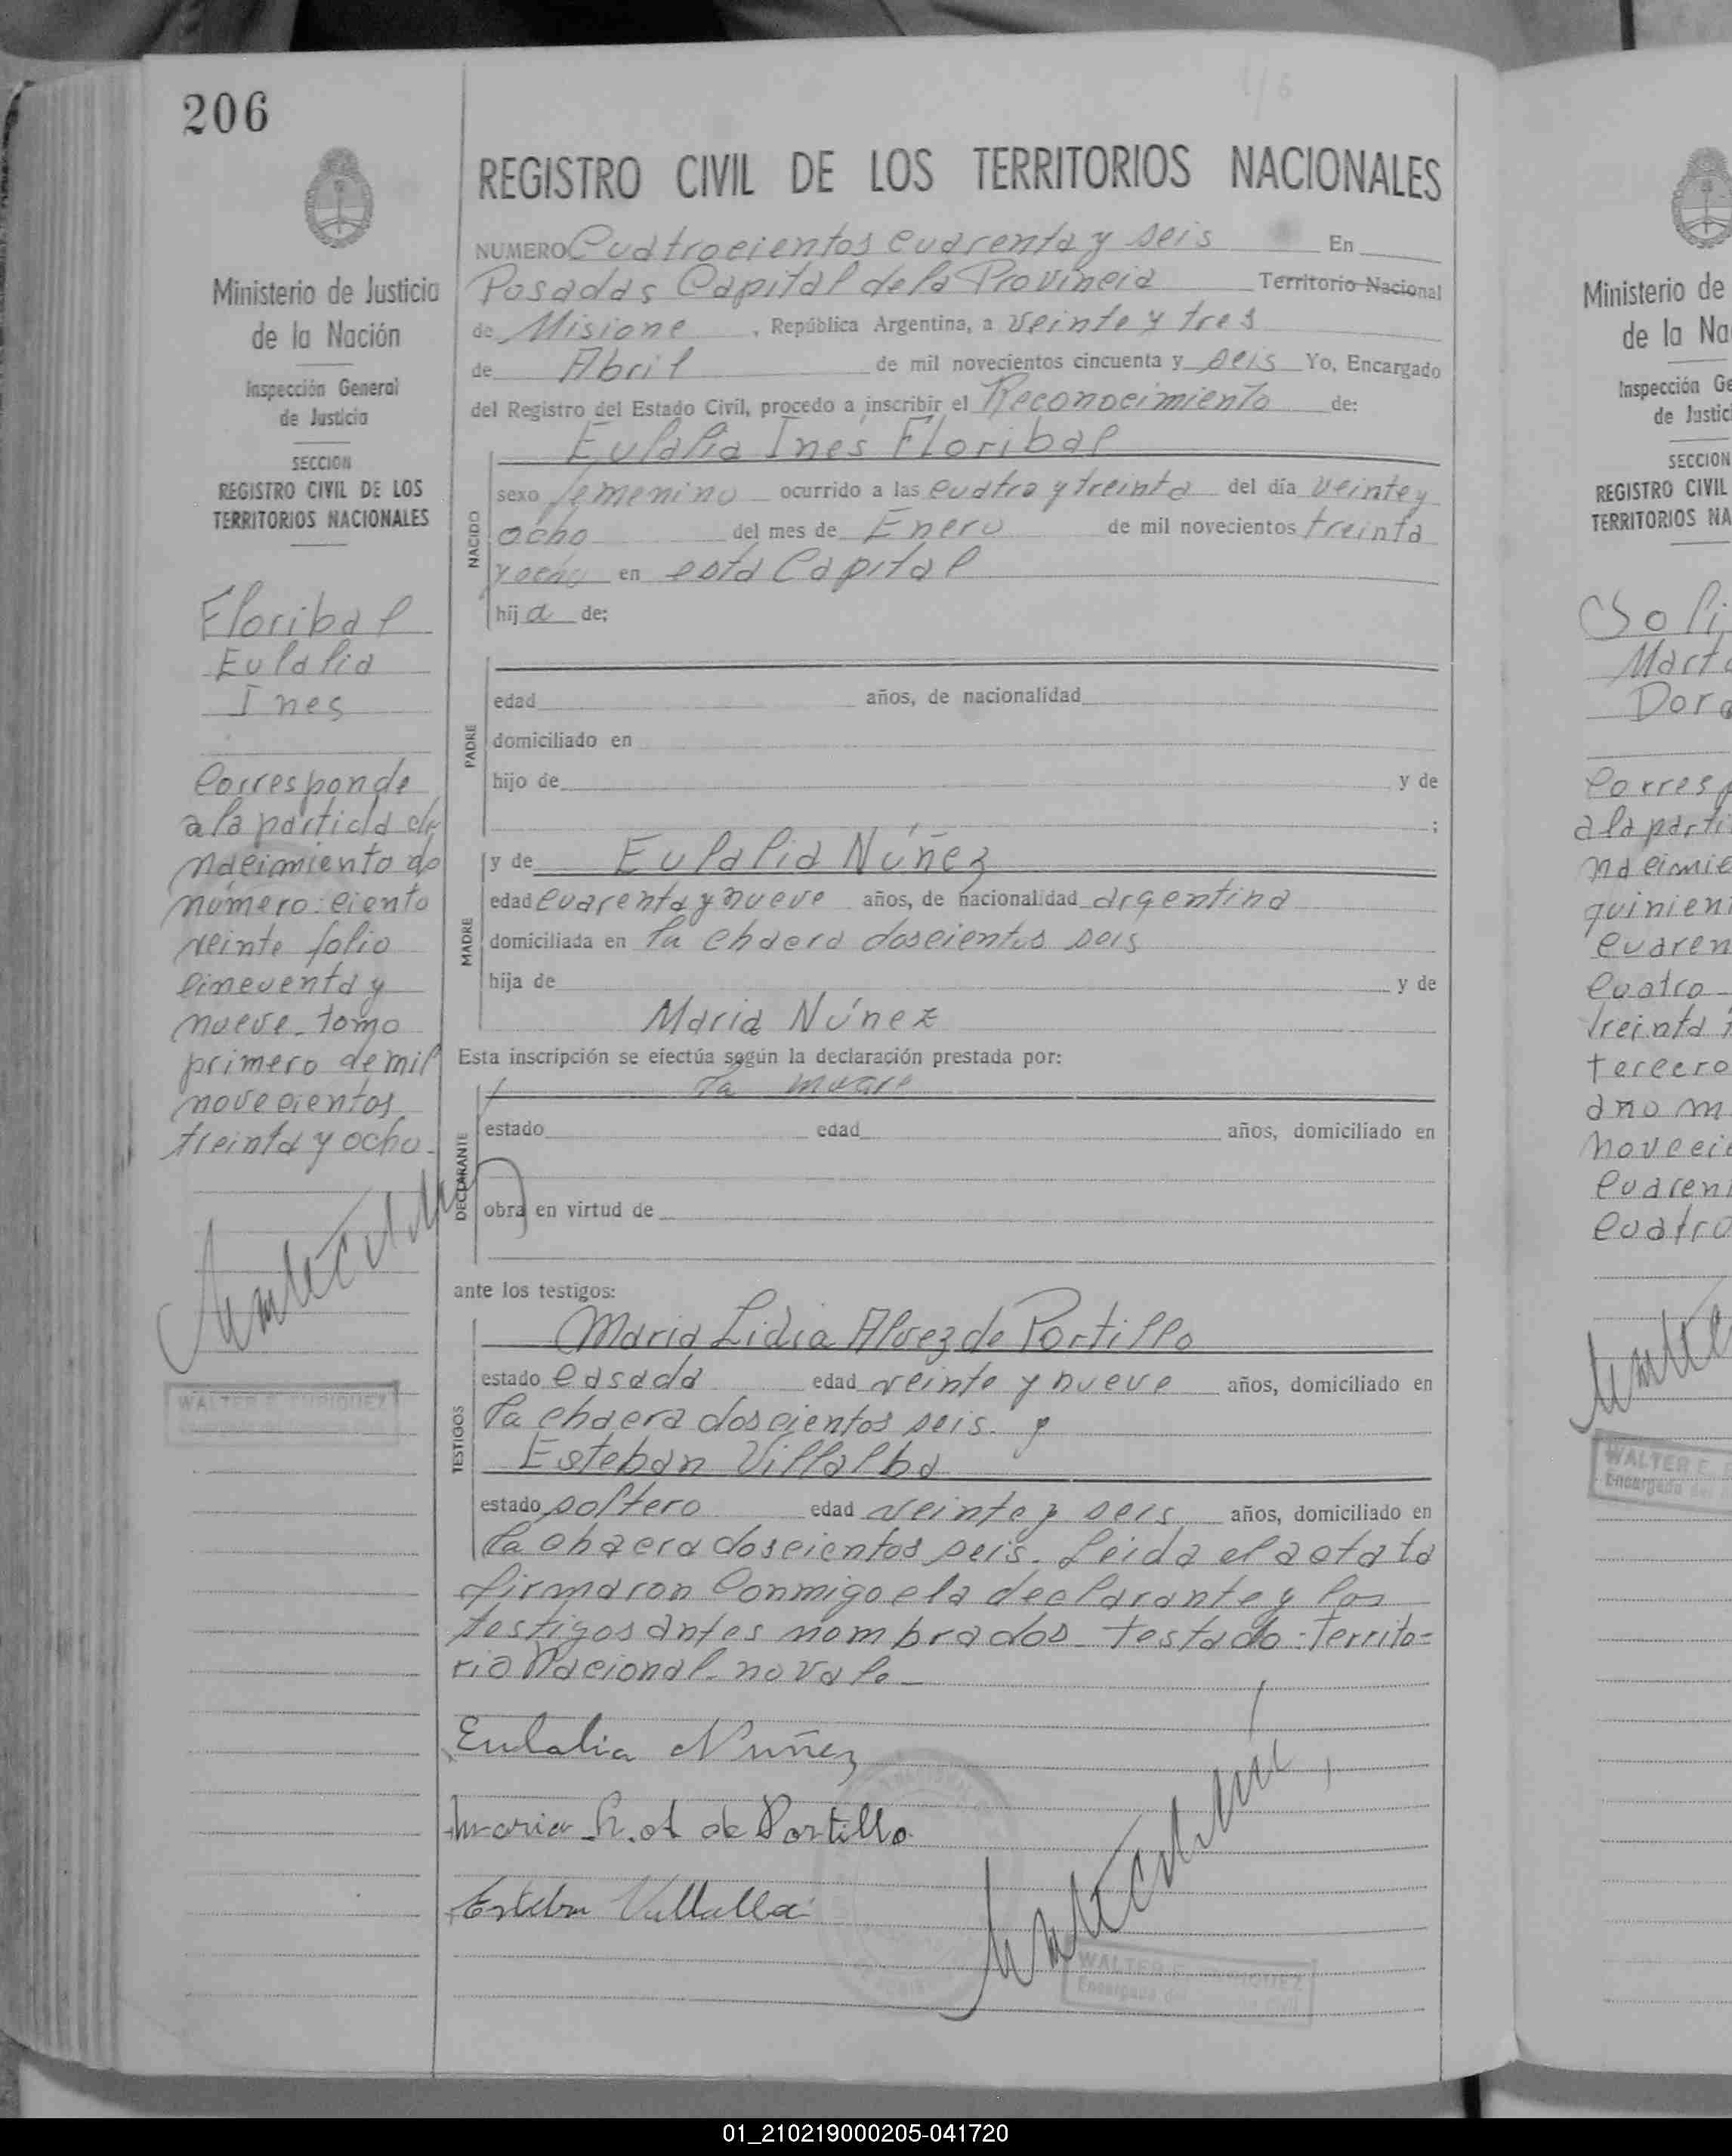 206
REGISTRO CIVIL DE LOS TERRITORIOS NACIONALES
Ministerio de Justicia
de la Nación
Inspección General
de Justicia
SECCION
REGISTRO CIVIL DE LOS
TERRITORIOS NACIONALES
Floribal
Eulalia
Ines
Corresponde
a la partida de
nacimiento do
número: ciento
veinte folio
cincuenta y
nueve tomo
primero de mil
novecientos
treinta y ocho.
WALTER E. ENRIQUEZ
NUMERO Cuatrocientos cuarenta y seis En
Posadas Capital de la Provincia Territorio Nacional
de Misione, República Argentina, a veinte y tres
de Abril de mil novecientos cincuenta y seis Yo, Encargado
del Registro del Estado Civil, procedo a inscribir el Reconocimiento de:
Eulalia Ines Floribal
NACIDO
sexo femenino ocurrido a las cuatro y treinta del día veinte y
ocho del mes de Enero de mil novecientos treinta
y ocho en esta Capital
hija de:
PADRE
edad años, de nacionalidad
domiciliado en
hijo de y de
;
MADRE
y de Eulalia Núñez
edad cuarenta y nueve años, de nacionalidad argentina
domiciliada en la chacra doscientos seis
hija de y de
Maria Núnez
Esta inscripción se efectúa según la declaración prestada por:
la madre
DECLARANTE
estado edad años, domiciliado en
obra en virtud de
ante los testigos:
TESTIGOS
Maria Lidia Alvez de Portillo
estado casada edad veinte y nueve años, domiciliado en
la chacra doscientos seis. y
Esteban Villalba
estado soltero edad veinte y seis años, domiciliado en
la chacra doscientos seis. Leida el acta la
firmaron conmigo la declarante y los
testigos antes nombrados. testado: Territo=
rio Nacional. no vale_
Eulalia Nuñez
Maria L. A de Portillo
Esteban Villalba
WALTER E. ENRIQUEZ
Encargado del
Ministerio de
de la Na
Inspección Ge
de Justic
SECCION
REGISTRO CIVIL
TERRITORIOS NA
Soli
Marta
Dora
Corresp
a la parti
nacimie
quinient
cuaren
cuatro
treinta
tercero
año m
novecie
cuaren
cuatro
WALTER E. E
Encargado del
01_210219000205-041720